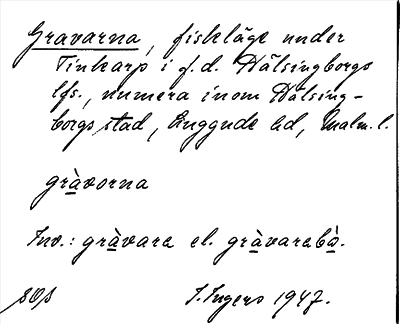 Gravarna, fiskläge under
Tinkarp i f.d. Hälsingborgs
lfs., numera inom Hälsing-
borgs stad, Luggude hd, Malm. l.
gràvorna
Inv.: gràvara el. gràvarabò.
sos
I. Ingers 1947.